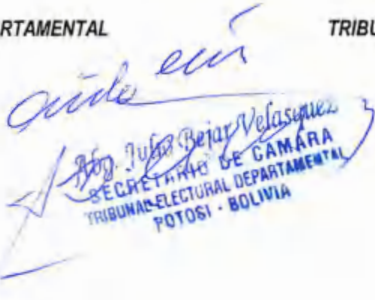 RTAMENTAL TRIBU
Abg. Julio Bejar Velasquez
SECRETARIO DE CAMARA
TRIBUNAL ELECTORAL DEPARTAMENTAL
POTOSI - BOLIVIA